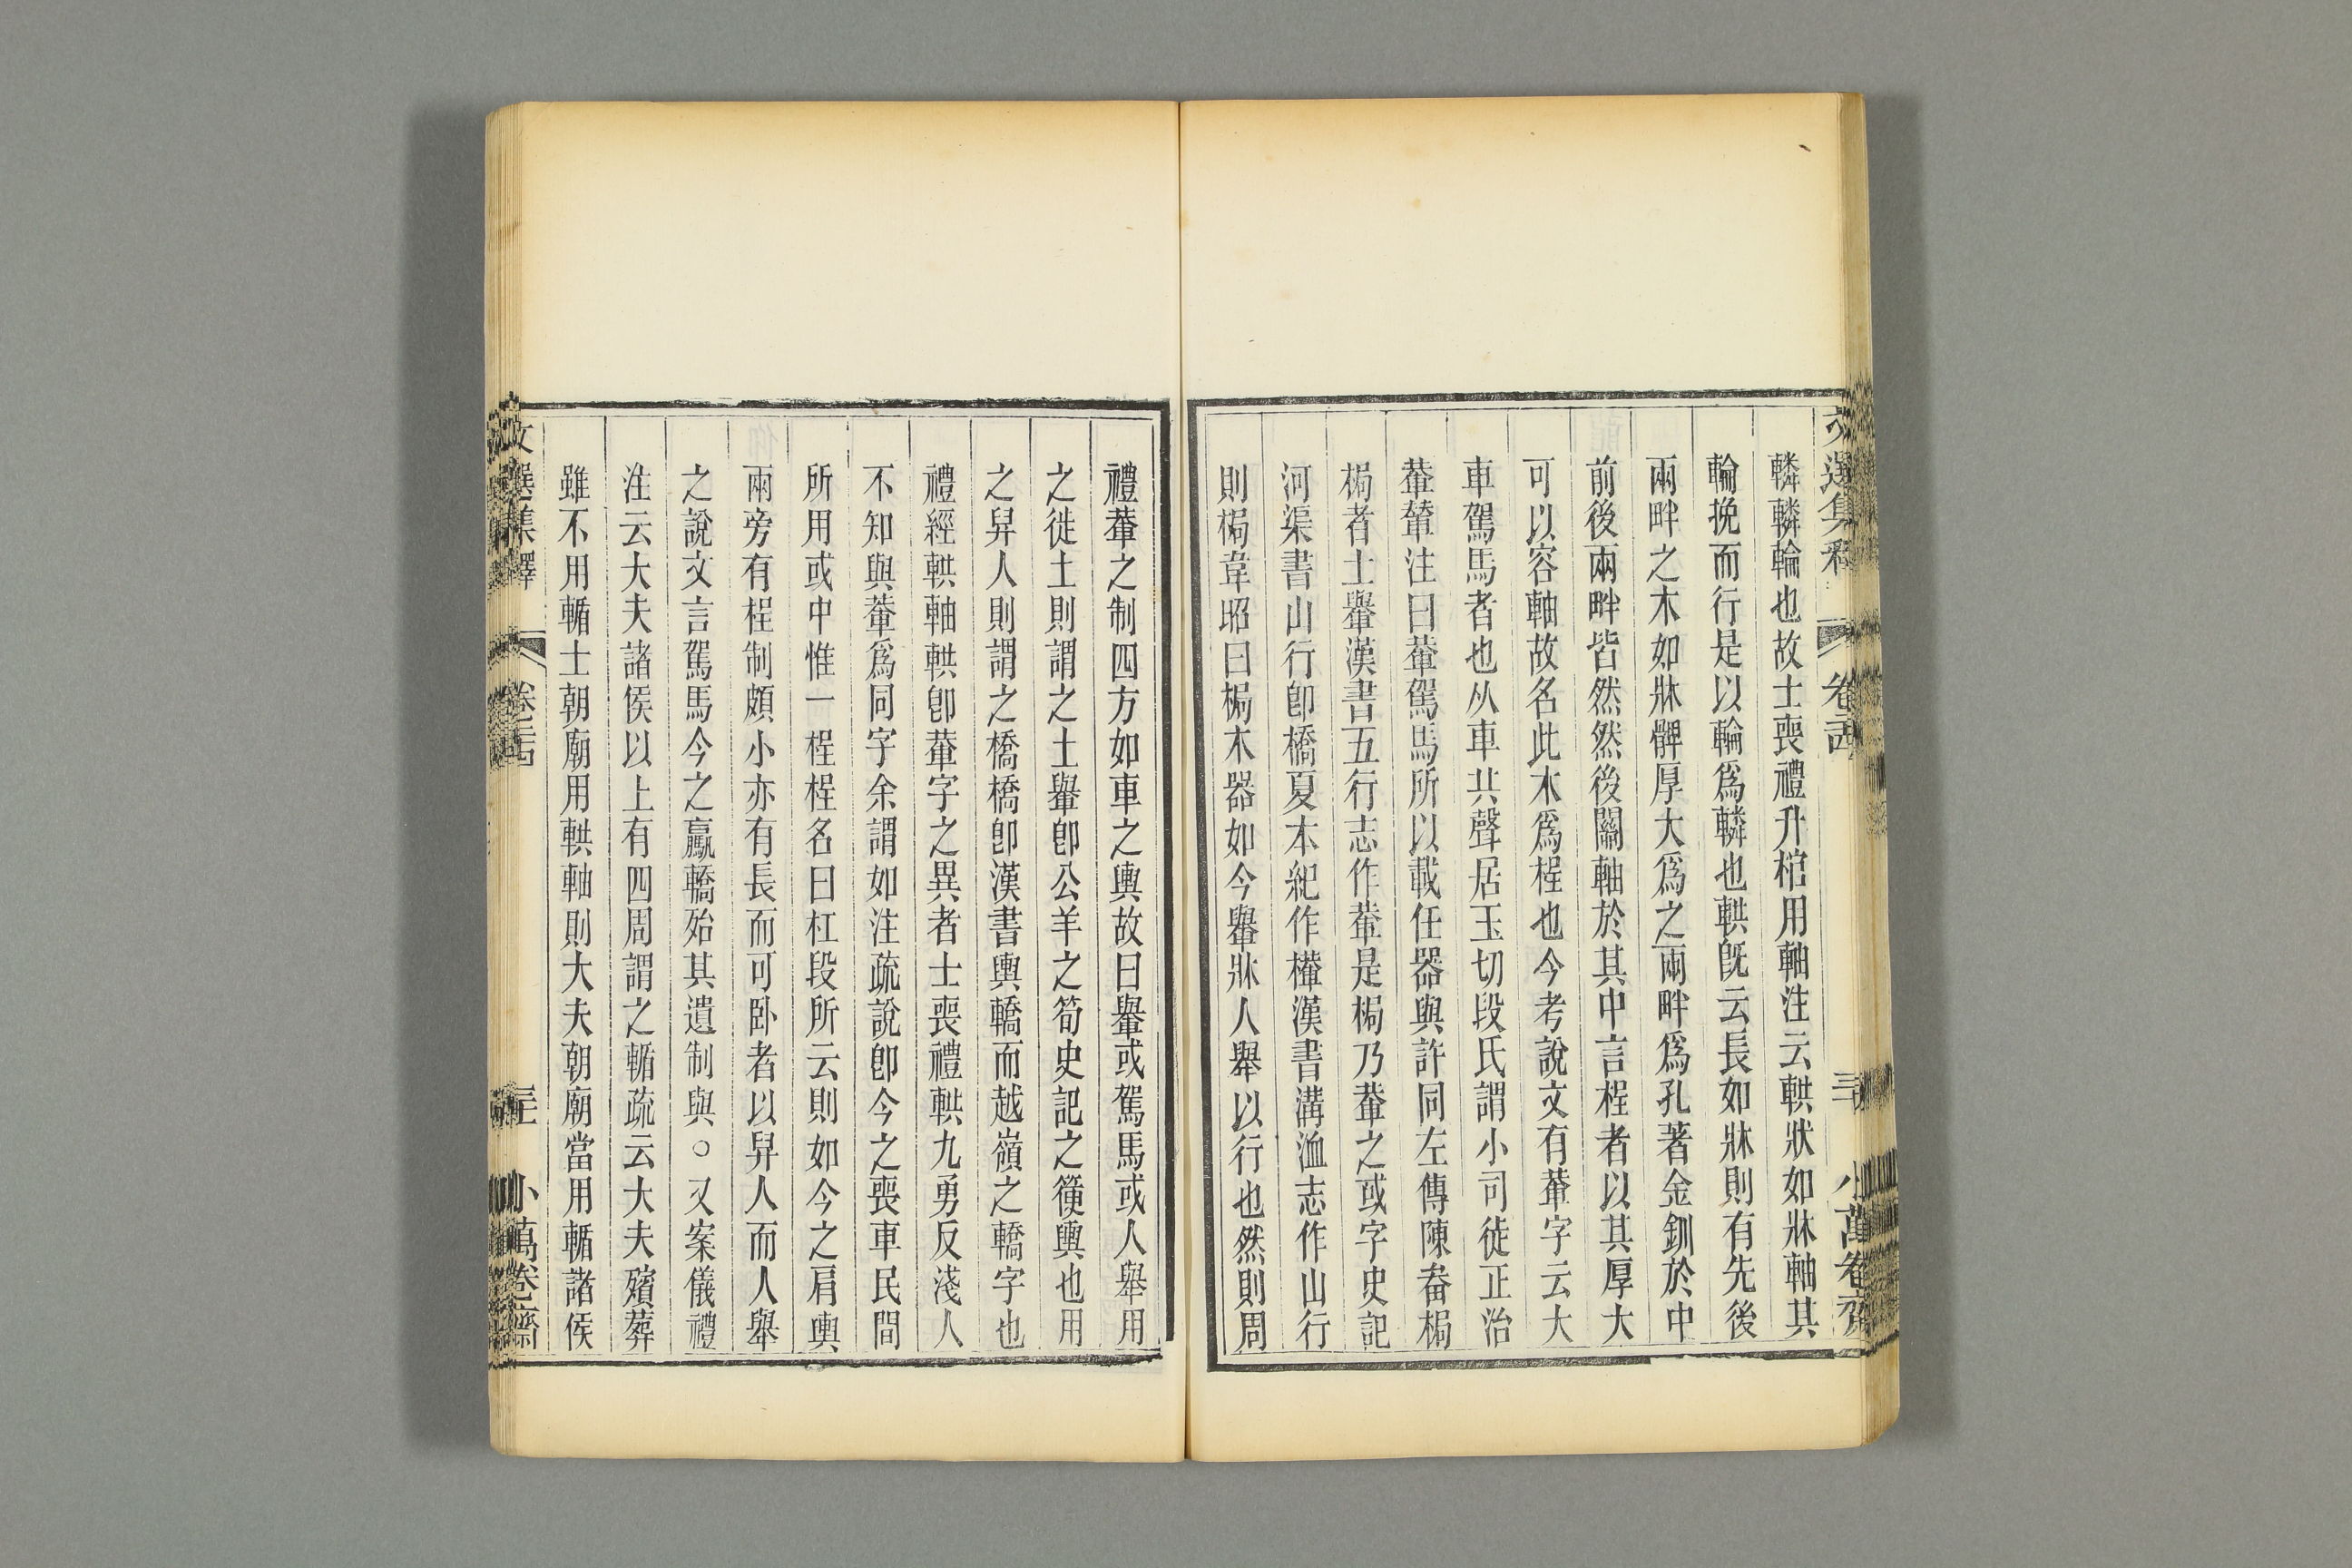 文選集釋 卷二十四 三十 小萬卷齋
轔轔輪也故士喪禮升棺用軸注云輁狀如牀軸其
輪挽而行是以輪爲轔也輁旣云長如牀則有先後
兩畔之木如牀髀厚大爲之兩畔爲孔著金釧於中
前後兩畔皆然然後關軸於其中言桯者以其厚大
可以容軸故名此木爲桯也今考說文有輂字云大
車駕馬者也从車共聲居玉切段氏謂小司徒正治
輂輦注曰輂駕馬所以載任器與許同左傳陳畚梮
梮者土轝漢書五行志作輂是梮乃輂之或字史記
河渠書山行卽橋夏本紀作檋漢書溝洫志作山行
則梮韋昭曰梮木器如今轝牀人舉以行也然則周
禮輂之制四方如車之輿故曰轝或駕馬或人舉用
之徙土則謂之土轝卽公羊之筍史記之箯輿也用
之舁人則謂之橋橋卽漢書輿轎而越嶺之轎字也
禮經輁軸輁卽輂字之異者士喪禮輁九勇反淺人
不知與輂爲同字余謂如注疏說卽今之喪車民間
所用或中惟一桯桯名曰杠段所云則如今之肩輿
兩旁有桯制頗小亦有長而可卧者以舁人而人舉
之說文言駕馬今之驘轎殆其遺制與○又案儀禮
注云大夫諸侯以上有四周謂之輴疏云大夫殯葬
雖不用輴士朝廟用輁軸則大夫朝廟當用輴諸侯
文選集釋 卷二十四 三十一 小萬卷齋